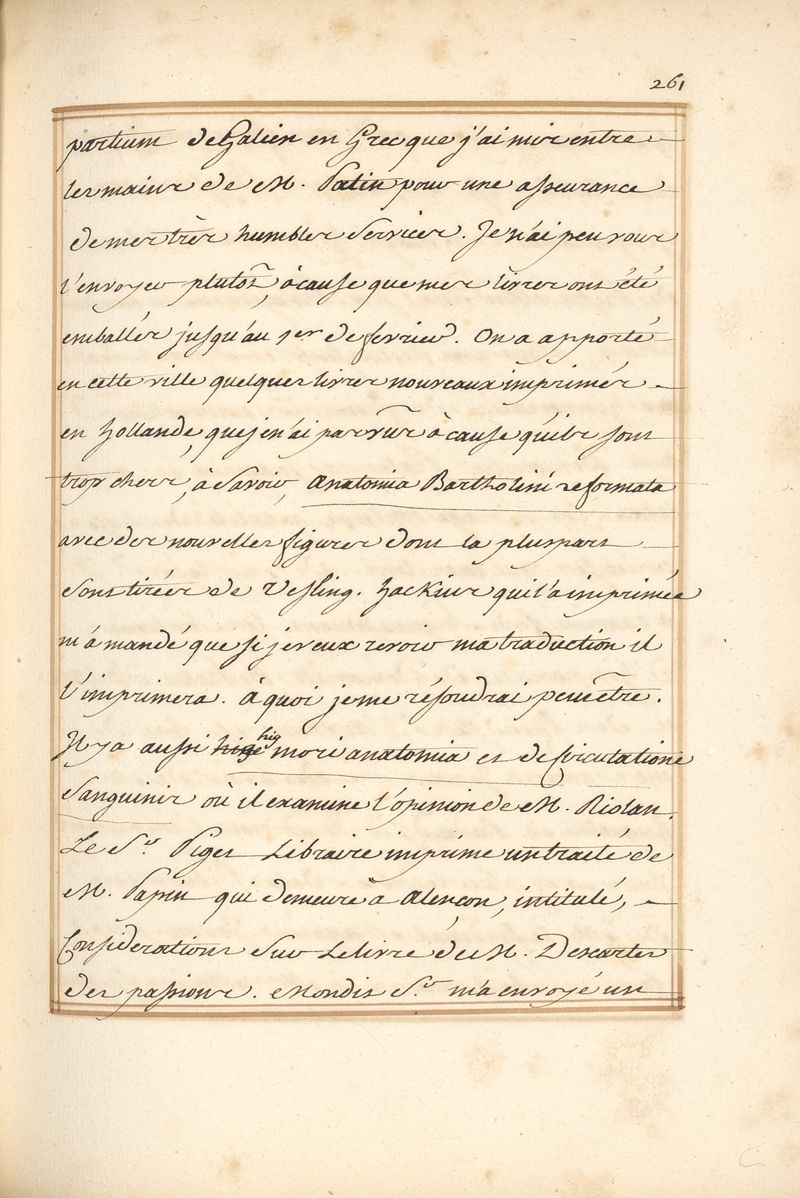 261
partium de Galien en Grec que j'ai mis entre
les mains de M. Patin pour une asseurance
de mes très humbles services. Je n'ai peu vous
l'envoyer plutôt, à cause que mes livres ont été
emballés jusqu'au 1er de fevrier. On a apporté
en cette ville quelques livres nouveaux imprimés
en hollande, que je n'ai pas vûs à cause qu'ils sont
trop chers, à savoir, Anatomia Bartholini reformata
avec des nouvelles figures dont la pluspart
sont tirées de Vesling. hackius qui l'a imprimée
m'a mandé que si je veux revoir ma traduction il
l'imprimera. à quoi je me résoudrai peut être.
Il y a aussi hig mori anatomia et de Circulatione
Sanguinis où il examine l'opinion de M. Riolan.
Le Sr. Piget Libraire imprime un traité de
M. Papin qui demeure à Alençon, intitulé,
Considerations sur le livre de M. Descartes
des passions. Mondit Sr. m'a envoyé un